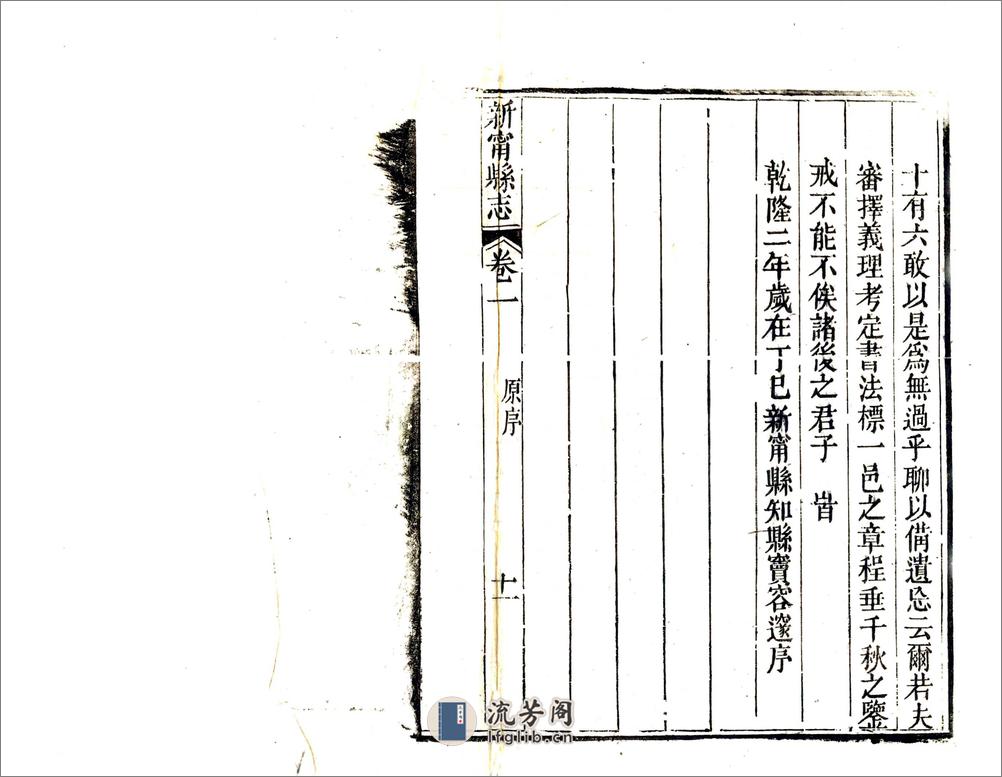 十有六敢以是為無過乎聊以備遺忘云爾若夫
審擇義理考定書法標一邑之章程垂千秋之鑒
戒不能不俟諸後之君子 旹
乾隆二年歲在丁巳新甯縣知縣竇容邃序
新甯縣志 卷一 原序 十一
流芳阁
lfglib.cn